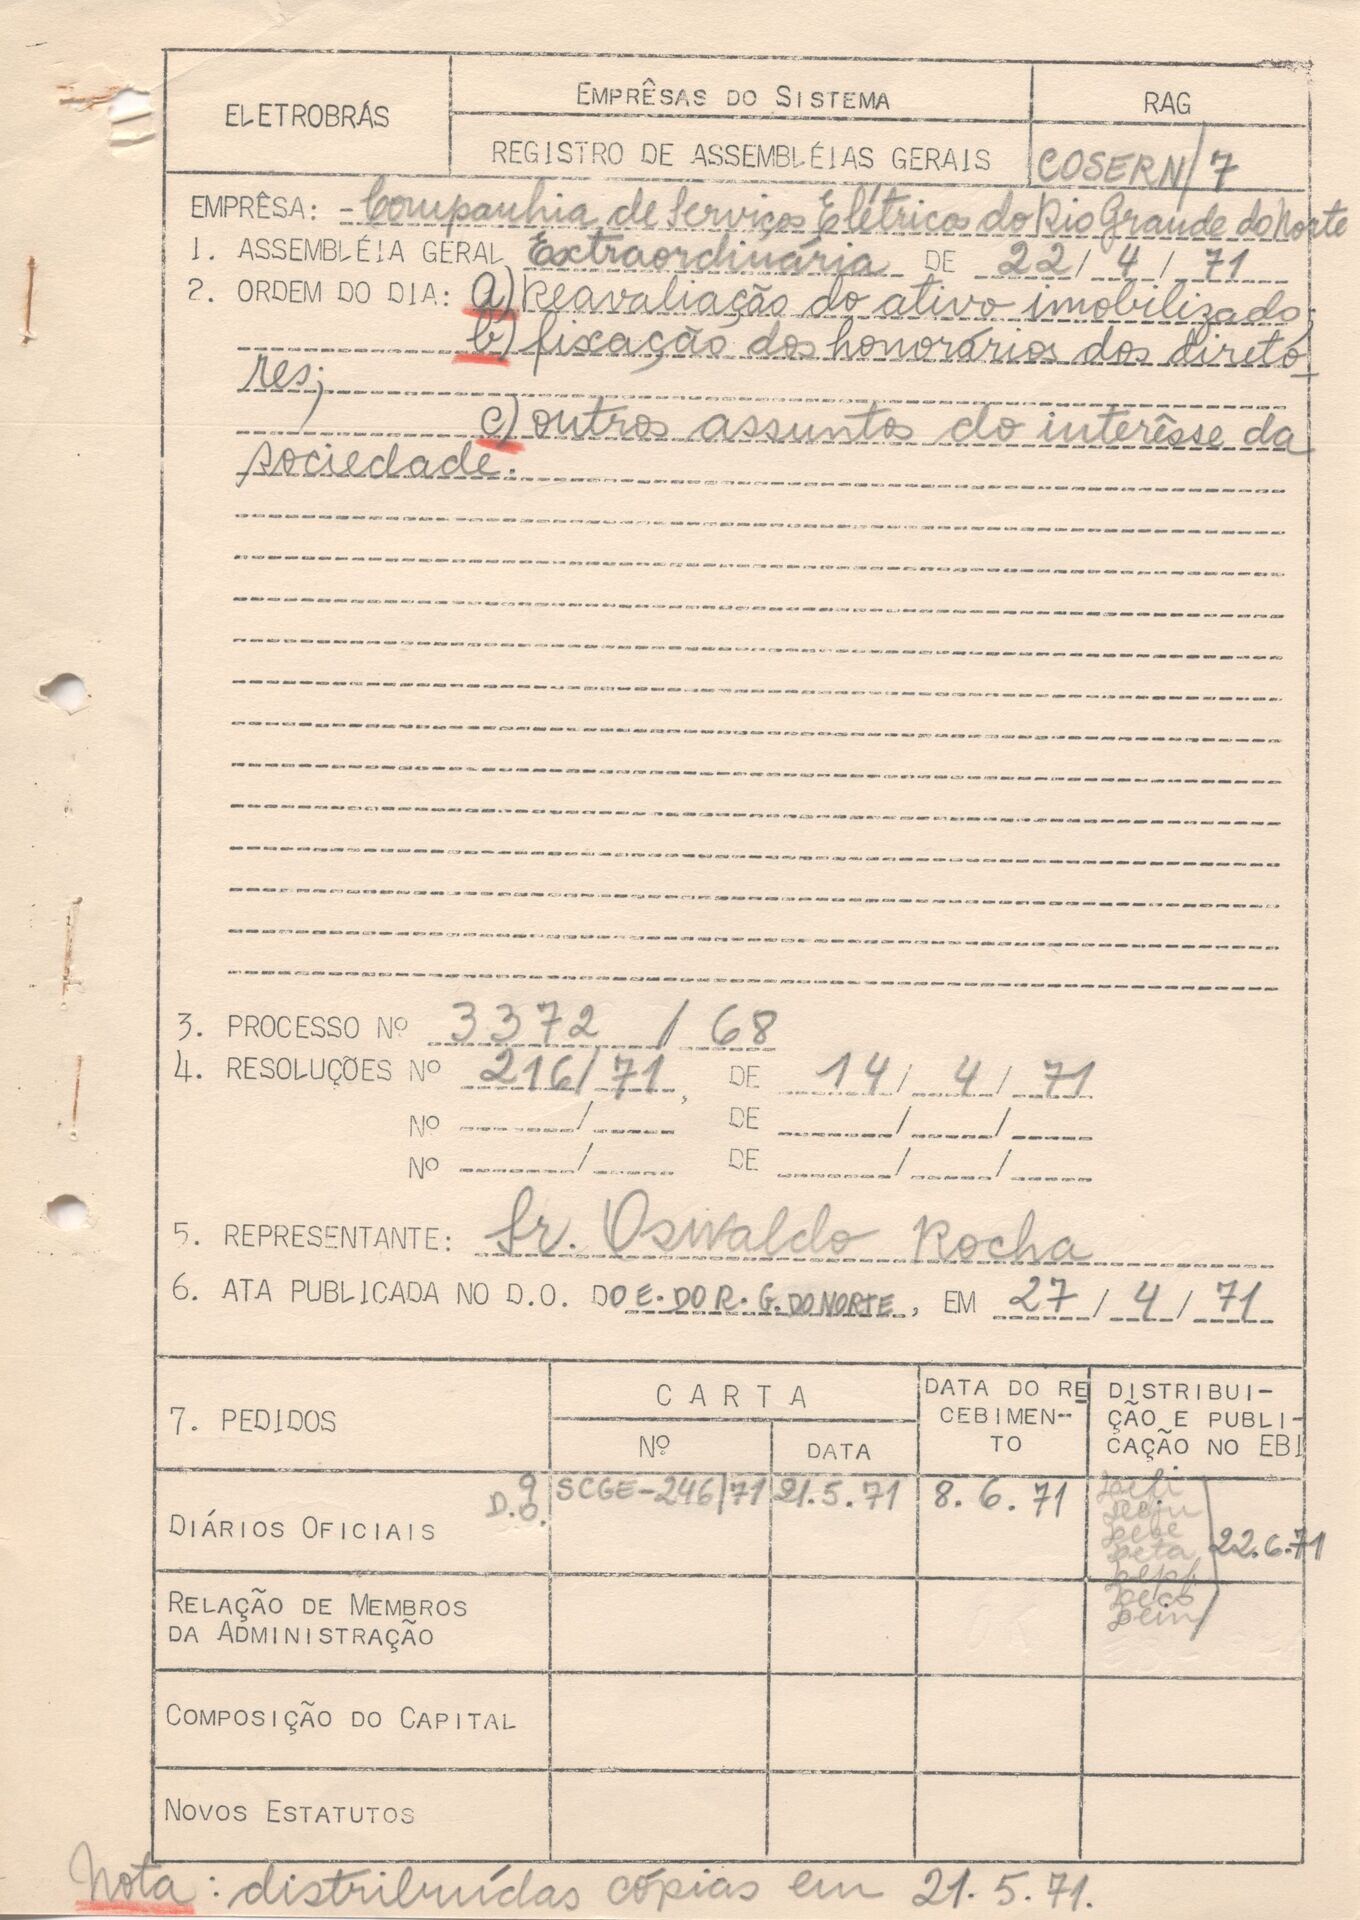 ELETROBRÁS
EMPRÊSAS DO SISTEMA
RAG
REGISTRO DE ASSEMBLÉIAS GERAIS
COSERN/7
EMPRÊSA: - Companhia de Serviços Elétricos do Rio Grande do Norte
1. ASSEMBLÉIA GERAL Extraordinária DE 22/4/71
2. ORDEM DO DIA: a) Reavaliação do ativo imobilizado;
b) fixação dos honorários dos direto-
res;
c) outros assuntos do interêsse da
sociedade.
3. PROCESSO Nº 3372/68
4. RESOLUÇÕES Nº 216/71, DE 14/4/71
Nº / DE / /
Nº / DE / /
5. REPRESENTANTE: Sr. Oswaldo Rocha
6. ATA PUBLICADA NO D.O. DO E. DO R. G. DO NORTE, EM 27/4/71
7. PEDIDOS
CARTA
Nº
DATA
DATA DO RE
CEBIMEN-
TO
DISTRIBUI-
ÇÃO E PUBLI-
CAÇÃO NO EBI
DIÁRIOS OFICIAIS
9
D.O.
SCGE-246/71
21.5.71
8.6.71
Defi
Deju
Debe
Deta
Depf
Deco
Dein
22.6.71
RELAÇÃO DE MEMBROS
DA ADMINISTRAÇÃO
COMPOSIÇÃO DO CAPITAL
NOVOS ESTATUTOS
Nota: distribuídas cópias em 21.5.71.